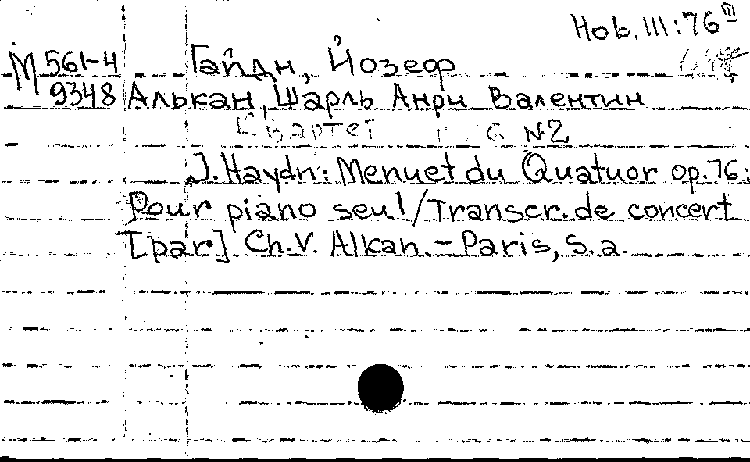 Hob. III:76 III
М 561-4
9348
Гайдн, Йозеф
Алькан, Шарль Анри Валентин
Квартет G №2
J. Haydn: Menuet du Quatuor op.76:
Pour piano seul / Transcr. de concert
[par] Ch. V. Alkan. – Paris, s.a.